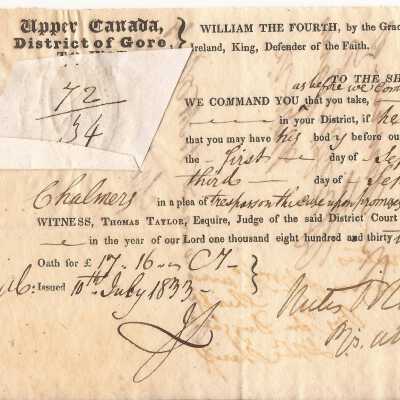 Upper Canada,
District of Gore,
WILLIAM THE FOURTH, by the Grac
Ireland, King, Defender of the Faith.
TO THE SH
72
34
as before we com
WE COMMAND YOU that you take,
in your District, if he
that you may have his body before ou
the first day of Se
third day of Se
Chalmers in a plea of trespass on the case upon promis
WITNESS, THOMAS TAYLOR, Esquire, Judge of the said District Court
in the year of our Lord one thousand eight hundred and thirty
Oath for £ 17 16
Issued 10th July 1833